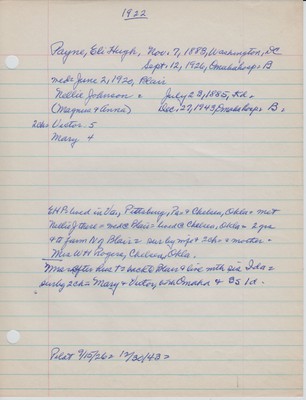 1922
Payne, Eli Hugh, Nov. 7, 1888, Washington, DC
Sept. 12, 1926, Omahahosp = B
md = June 2, 1920, Blair
Nellie Johnson = July 23, 1885, Ks.
(Magnus & Anna) Dec. 27, 1943, Omahahosp = B.
2ch = Victor 5
Mary 4
EHP = lived in Va., Pittsburg, Pa & Chelsea, Okla = met
Nellie J there = md @ Blair = lived @ Chelsea, Okla = 2 yrs
& to farm N of Blair = surby wf & 2ch & mother =
Mrs WH Rogers, Chelsea, Okla.
= after to back to Blair & live with sis Ida =
surby 2ch = Mary & Victor, Omaha & Bs Id.
Pilot 9/15/26 = 12/30/43 =